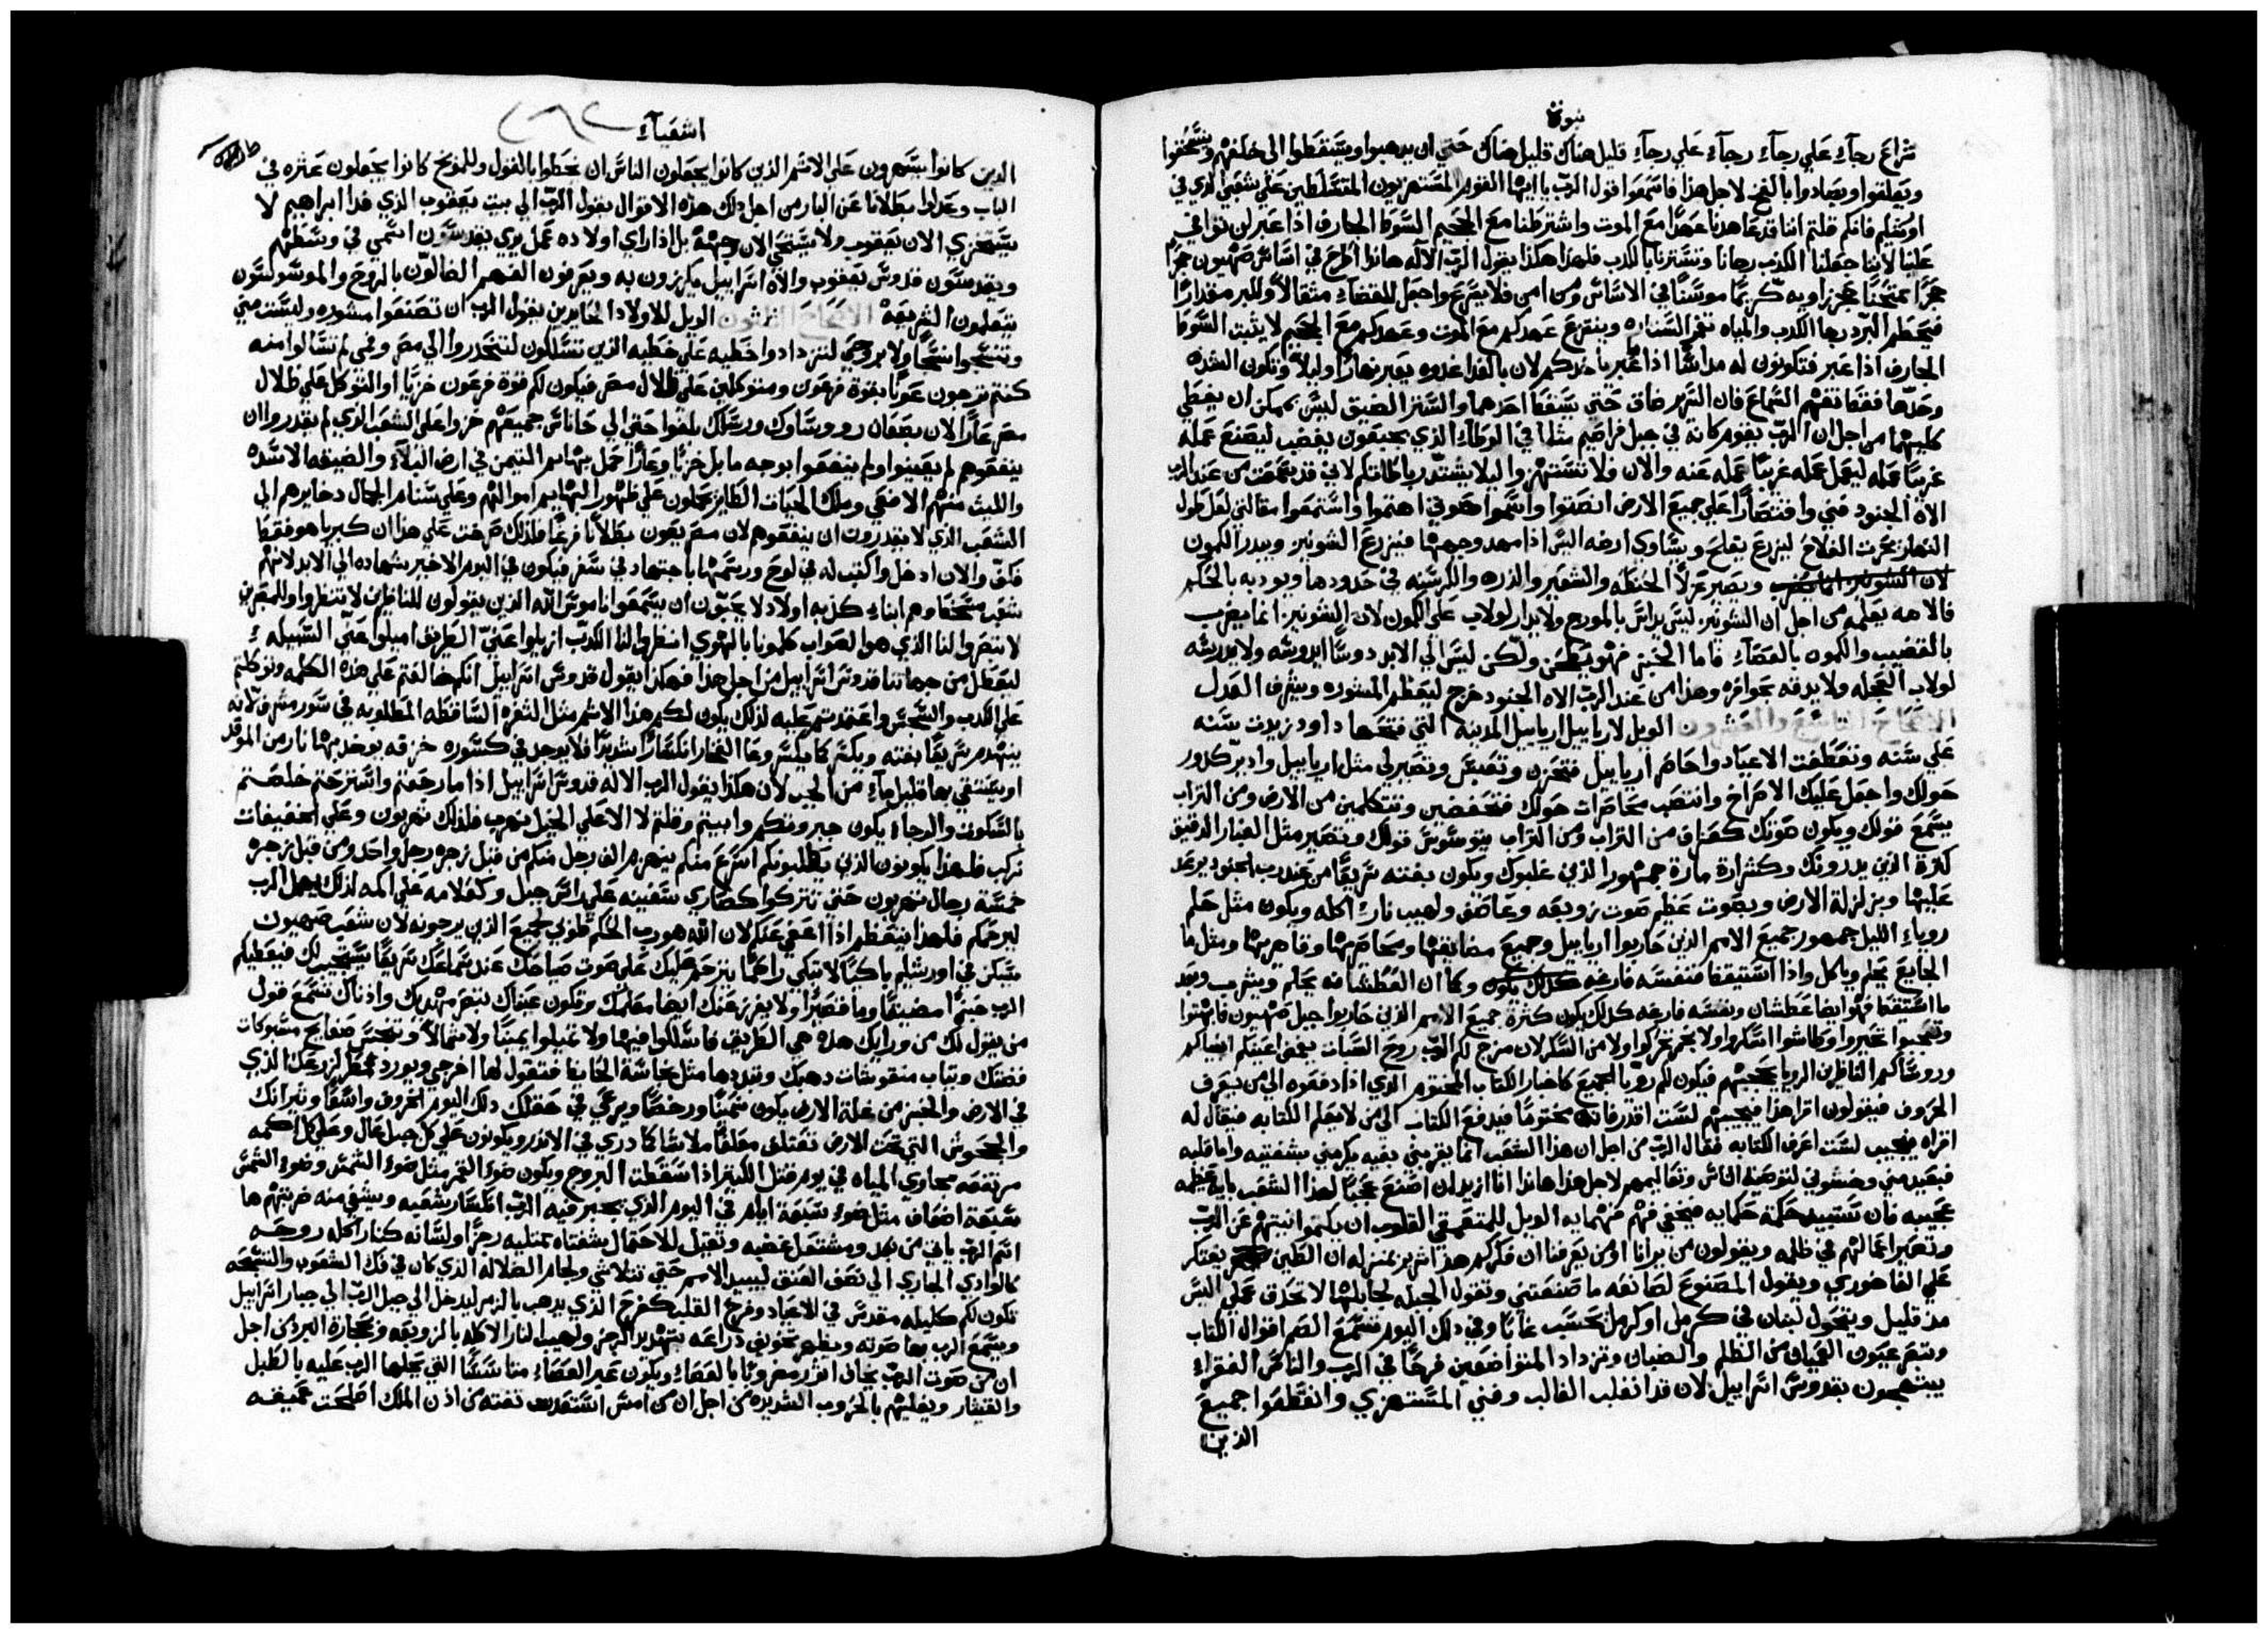 نبوة
تراع رجآء علي رجآء رجآء علي رجآء قليل هناك قليل هناك حتي ان يدهبوا ويسقطوا الي خلفهم وينسحقوا
ويعلقوا ويصادوا بالفخ لاجل هذا فاسمعوا قول الرب يا ايها القوم المستهزيون المتسلطين علي شعبي الذي في
اورشليم فانكم قلتم اننا قد عاهدنا عهدًا مع الموت واشترطنا مع الجحيم السوط الجارف اذا عبر لن توافي
علينا لاننا جعلنا الكدب رجانا وتسترنا بالكدب فلهذا هكذا يقول الرب الاله هانذا اطرح في اساس صهيون حجرًا
حجرًا ممتحنًا حجر زاويه كريمًا موسسًا في الاساس ومن امن فلا يسرع واجعل للقضآء مثقالاً وللبر مقدارًا
فيحطم البرد رجا الكدب والمياه تغمر السناره وينقرع عهدكم مع الموت وعهدكم مع الجحيم لا يثبت السوط
الجارف اذا عبر فتكونون له مداسًا اذا عبر ياخدكم لان بالغداه غدوه يعبر نهارًا وليلاً وتكون الشده
وحدها فقط تفهم السماع فان السرير ضاق حتي يسقط احدهما والستر الضيق ليس يمكن ان يغطي
كليهما من اجل ان الرب يقوم كانه في جبل فراضيم مثلما في الوطاء الذي بجبعون يغضب ليصنع عمله
غريبًا عمله ليعمل عمله غريبًا عمله عنه والان ولا تستهزوا ليلا يشتد رباطاتكم لاني قد سمعت من عند الرب
الاه الجنود فني واقتصارًا علي جميع الارض انصتوا واسمعوا صوتي اهتموا واستمعوا مقالتي لعل طول
النهار يحرث الفلاح ليزرع يفلح ويساوي ارضه اليس اذا مهد وجهها فيزرع الشونيز ويبدر الكمون
ويصير غرلاً الحنطه والشعير والذره والكرسنه في حدودها ويودبه بالحكم
فالاهه يعلمه من اجل ان الشونيز ليس يداس بالمورج ولا يدار لولاب علي الكمون لان الشونيز انما يضرب
بالقضيب والكمون بالعصآء فاما الخبز فهو يطحن ولكن ليس الي الابد دوسًا يدوسه ولا يدرسه
لولاب العجله ولا يدقه بحوافره وهذا من عند الرب الاه الجنود خرج ليعظم المشوره ويشرف العدل
الاصحاح التاسع والعشرون الويل لاريابيل اريابيل المدينه التي فتحها داود زيدت سنه
علي سنه وتعطلت الاعياد واحاصر اريابيل فتحزن وتعبس وتصير لي مثل اريابيل وادير كدور
حولك واجعل عليك الامراخ وانتصب محاصرات حولك فتحفضين وتتكلمين من الارض ومن التراب
يسمع قولك ويكون صوتك كعراف من التراب ومن التراب يتوسوس قولك ويصير مثل الغبار الدقيق
كثرة الذين يدرونك وكشراره ماره جمهور الذين غلبوك ويكون بغته سريعًا من عند رب الجنود يرعد
عليها وبزلزلة الارض وبصوت عظيم صوت زوبعه وعاصف ولهيب نار اكله ويكون مثل حلم
روياء الليل جمهور جميع الامم الذين حاربوا اريابيل وجميع مضايقيها ومحاصريها وقاهريها ومثل ما
الجايع يحلم وياكل واذا استيقظ فنفسه فارغه وكما ان العطشان يحلم ويشرب وبعد
ما استيقظ فهو ايضا عطشان ونفسه فارغه كذلك يكون كثرة جميع الامم الذين حاربوا جبل صهيون فابهتوا
وتعجبوا تحيروا وطاشوا اسكروا ولا بخمر تحركوا ولا من السكر لان مزج لكم الرب روح السبات يغمض اعينكم انبياكم
وروسآكم الناظرين الرويا يحجبهم فيكون لكم رويا الجميع كاخبار الكتاب المختوم الذي اذا دفعوه الي من يعرف
الحروف فيقولون اقرا هذا فيجيبهم لست اقدر فانه مختومًا فيدفع الكتاب الي من لا يعلم الكتابه فيقال له
اقراه فيجيب لست اعرف الكتابه فقال الرب من اجل ان هذا الشعب انما يقربني بفيه يكرمني بشفتيه واما قلبه
فبعيد مني وخشوني لتوصية الناس وتعاليمهم لاجل هذا هانذا انا ازيد ان اصنع عجبًا لهذا الشعب بايه عظيمه
عجيبه فان تستبيد حكمة حكمايه فيختفي فهم فهمايه الويل للمتعمقي القلوب ان يكتموا نيتهم عن الرب
وتصير اعمالهم في ظلمه ويقولون من يرانا او من يعرفنا ان فكركم هذا شرير بمنزله ان الطين يفتكر
علي الفاخوري ويقول المصنوع لصانعه ما صنعتني وتقول الجبله لجابلها لا تحذق عملي اليس
مد قليل ويتحول لبنان في كرمل وكرمل يحسب غابًا وفي ذلك اليوم يسمع الصم اقوال الكتاب
وتبصر عيون العميان من الظلم والضباب وتزداد المتواضعين فرحًا في الرب والناس الفقراء
يبتهجون بقدوس اسرابيل لان قد انقلب الغالب وفني المستهزي وانقطعوا جميع
الذين
اشعيآء
الذين كانوا يسهرون علي الاثم الذين كانوا يجعلون الناس ان يخطوا بالقول وللموبخ كانوا يجعلون عثره في
الباب وعدلوا بطلانا عن البار من اجل ذلك هذه الاقوال يقول الرب الي بيت يعقوب الذي فدا ابراهيم لا
يستخزي الان يعقوب ولا يستحي الان وجهه بل اذا راي اولاده عمل يدي يقدسون اسمي في وسطهم
ويقدسون قدوس يعقوب والاه اسرابيل يكرزون به ويعرفون الفهم الضالون بالروح والموسوسون
يتعلمون الشريعه الاصحاح الثلثون الويل للاولاد الحايدين يقول الرب ان تصنعوا مشوره وليست مني
وتنسجوا نسجًا ولا بروحي لتزدادوا خطيه علي خطيه الذين تسلكون لتنحدروا الي مصر وفمي لم تسالوا منه
كنتم ترجون عونًا بقوة فرعون ومتوكلين علي ظلال مصر فيكون لكم قوة فرعون خزيًا والتوكل علي ظلال
مصر عارًا لان بصعان روساوك ورسلك بلغوا حتي الي حاناس جميعهم خزوا علي الشعب الذي لم يقدروا ان
ينفعوهم لم يعينوا ولم ينفعوا بوجه ما بل خزيًا وعارًا حمل بهايم التيمن في ارض البلاء والضيقه الاسده
والليث منهم الافعي وملك الحيات الطاير يحملون علي ظهور البهايم اموالهم وعلي سنام الجمال دخايرهم الي
الشعب الذي لا يقدرون ان ينفعوهم لان مصر يعون بطلانًا فرغًا فلذلك صرخت علي هذا ان كبريا هو فقط
فكف والان ادخل واكتب له في لوح ورسمها باجتهاد في سفر فيكون في اليوم الاخير شهاده الي الابد لانهم
شعب مسخط وهم ابناء كذبه اولاد لا يحبون ان يسمعوا ناموس الله الذين يقولون للناظرين لا تنظروا وللمبصرين
لا تبصروا لنا الذي هو الصواب كلمونا بالهوي انظروا لنا الكدب ازيلوا عني الطريق اميلوا عني السبيله
ليعطل من جهاتنا قدوس اسرابيل من اجل هذا فهكذا يقول قدوس اسرابيل انكم خالفتم علي هذه الكلمه وتوكلتم
علي الكدب والسجس واعتمدتم عليه لذلك يكون لكم هذا الاثم مثل الثغره الساقطه المطلوبه في سور مشرف لانه
ينهدم سريعًا بغته ويكسر كما يكسر وعا الفخار انكسارًا شديدًا فلا يوجد في كسوره خزفه يوخد بها نار من الموقد
او يستقي بها قليل مآء من الجب لان هكذا يقول الرب الاله قدوس اسرابيل اذا ما رجعتم واسترحتم خلصتم
بالسكون والرجاء يكون جبروتكم وابيتم وقلتم لا الا علي الخيل نهرب فلذلك تهربون وعلي الخفيفات
نركب فلهذا يكونون الذين يطلبونكم اسرع منكم ينهزم الف رجل منكم من قبل زجره رجل واحد ومن قبل زجره
خمسة رجال تهربون حتي تتركوا كصاري سفينه علي راس جبل وكعلامه علي اكمه لذلك يمهل الرب
ليرحمكم فلهذا يتعظم اذا اعفي عنكم لان الله هو رب الحكم طوبي لجميع الذين يرجونه لان شعب صهيون
يسكن في اورشليم باكيًا لا تبكي راحمًا يترحم عليك علي صوت صياحك عند سماعك سريعًا يستجيب لك فيعطيكم
الرب خبزًا مضيقًا وما قصيرًا ولا يفرز عنك ايضا معلمك وتكون عيناك تبصر مهديك واذناك تسمع قول
من يقول لك من ورايك هذه هي الطريق فاسلكوا فيها ولا تميلوا يمينًا ولا شمالاً وتنجس صفايح مسبوكات
فضتك وثياب منقوشات دهبك وتبددها مثل نجاسة الحايظ فتقول لها اخرجي ويورد مطر لزرعك الذي
في الارض والخبز من غلة الارض يكون سمينًا ورخصًا ويرعي في حقلك ذلك اليوم الخروف واسعًا وثيرانك
والجحوش التي تحت الارض تعتلف معلفًا ملاشًا كما دري في الاندر ويكونون علي كل جبل عال وعلي كل اكمه
مرتفعه مجاري المياه في يوم قتل الكثير اذا سقطت البروج ويكون ضوء القمر مثل ضوء الشمس وضوء الشمس
سبعة اضعاف مثل ضوء سبعة ايام في اليوم الذي يجبر فيه الرب انكسار شعبه ويشفي منه ضربتهم ها
اسم الرب ياتي من بعد ومشتعل غضبه وتقبل للاحتمال شفتاه ممتليه رجزًا ولسانه كنار اكله روحه
كالوادي الجاري الي نصف العنق ليبيد الامم حتي تتلاشي ولجام الضلاله الذي كان في فك الشعوب والتسبحه
تكون لكم كليلة مقدس في الاعياد وفرح القلب كفرح الذي يدهب بالزمر ليدخل الي جبل الرب الي جبار اسرابيل
ويسمع الرب بها صوته ويظهر تخويف دراعه بتهديد الرجز ولهيب النار الاكله بالزوبعه وبحجارة البرد من اجل
ان من صوت الرب يخاف اثور مضروبًا بالعصاء ويكون عبر العصاء متاسسًا التي يحملها الرب عليه بالطبل
والقيثار ويغلبهم بالحروب الشديده من اجل ان من امس استعدت تفته من اذن الملك اصلحت عميقه